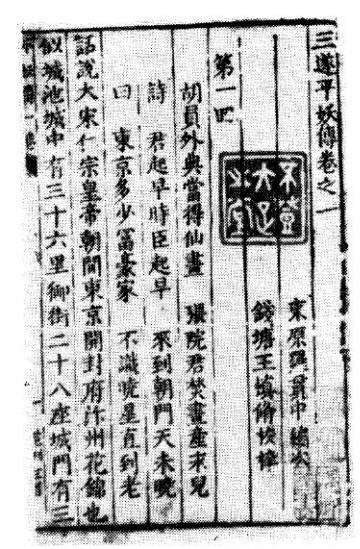 三遂平妖傳卷之一
東原羅貫中編次
錢塘王慎脩校梓
第一囘
胡員外典當得仙畫 張院君焚畫產永兒
詩 君起早時臣起早 來到朝門天未曉
曰 東京多少富豪家 不識曉星直到老
話說大宋仁宗皇帝朝間東京開封府汴州花錦也
似城池城中有三十六里御街二十八座城門有三